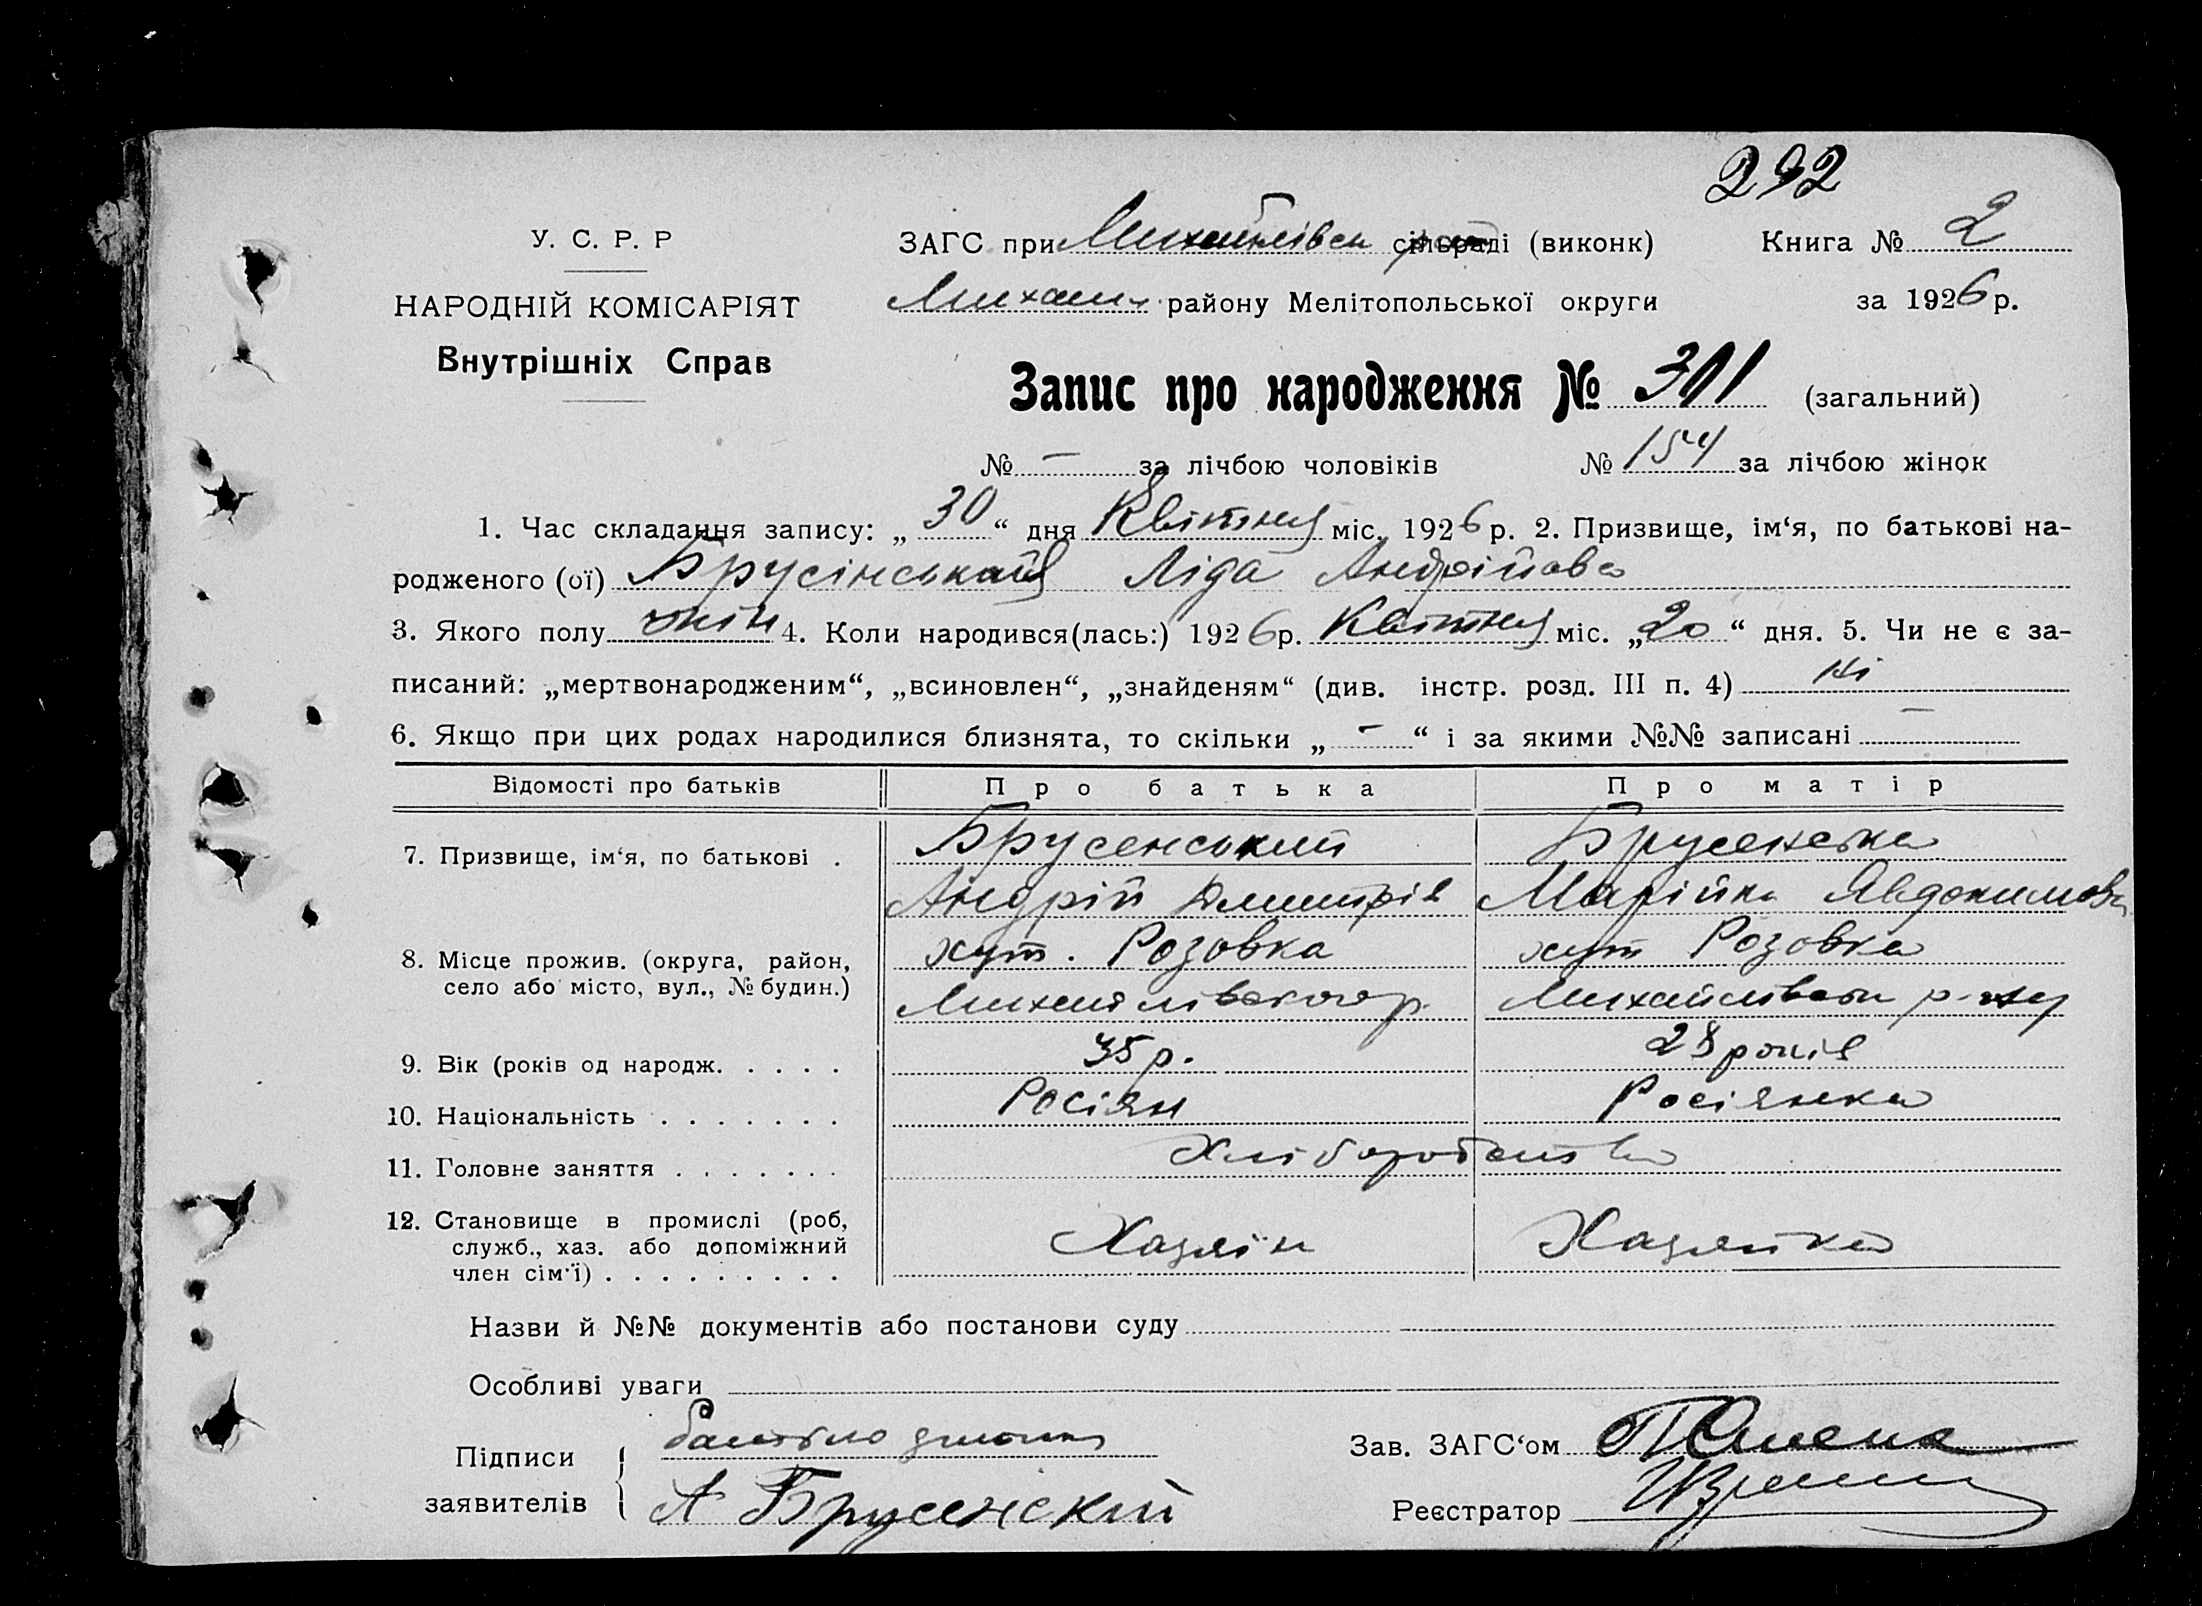 292
У. С. Р. Р
ЗАГС при Михайлівськ сільраді (виконк) Книга № 2
НАРОДНІЙ КОМІСАРІЯТ
Михайл. району Мелітопольської округи за 1926 р.
Внутрішніх Справ
Запис про народження № 301 (загальний)
№ — за лічбою чоловіків № 154 за лічбою жінок
1. Час складання запису: „30“ дня Квітня міс. 1926 р. 2. Призвище, ім‘я, по батькові на-
родженого (ої) Брусінська Ліда Андрійова
3. Якого полу жін 4. Коли народився(лась:) 1926 р. Квітня міс. „20“ дня. 5. Чи не є за-
писаний: „мертвонародженим“, „всиновлен“, „знайденям“ (див. інстр. розд. III п. 4) ні
6. Якщо при цих родах народилися близнята, то скільки „ — “ і за якими №№ записані —
Відомості про батьків Про батька Про матір
7. Призвище, ім‘я, по батькові . Брусенський Брусенська
Андрій Дмитрів Марійка Явдокимова
8. Місце прожив. (округа, район, хут. Розовка хут Розовка
село або місто, вул., № будин.) Михайлівського р. Михайлівськ р-ну
9. Вік (років од народж. . . . . 35 р. 28 років
10. Національність . . . . . . . Росіян Росіянка
11. Головне заняття . . . . . . . Хліборобство
12. Становище в промислі (роб,
служб., хаз. або допоміжний Хазяїн Хазяйка
член сім‘ї) . . . . . . . . .
Назви й №№ документів або постанови суду
Особливі уваги
Підписи батько
заявителів А Брусенский
Зав. ЗАГС‘ом
Реєстратор